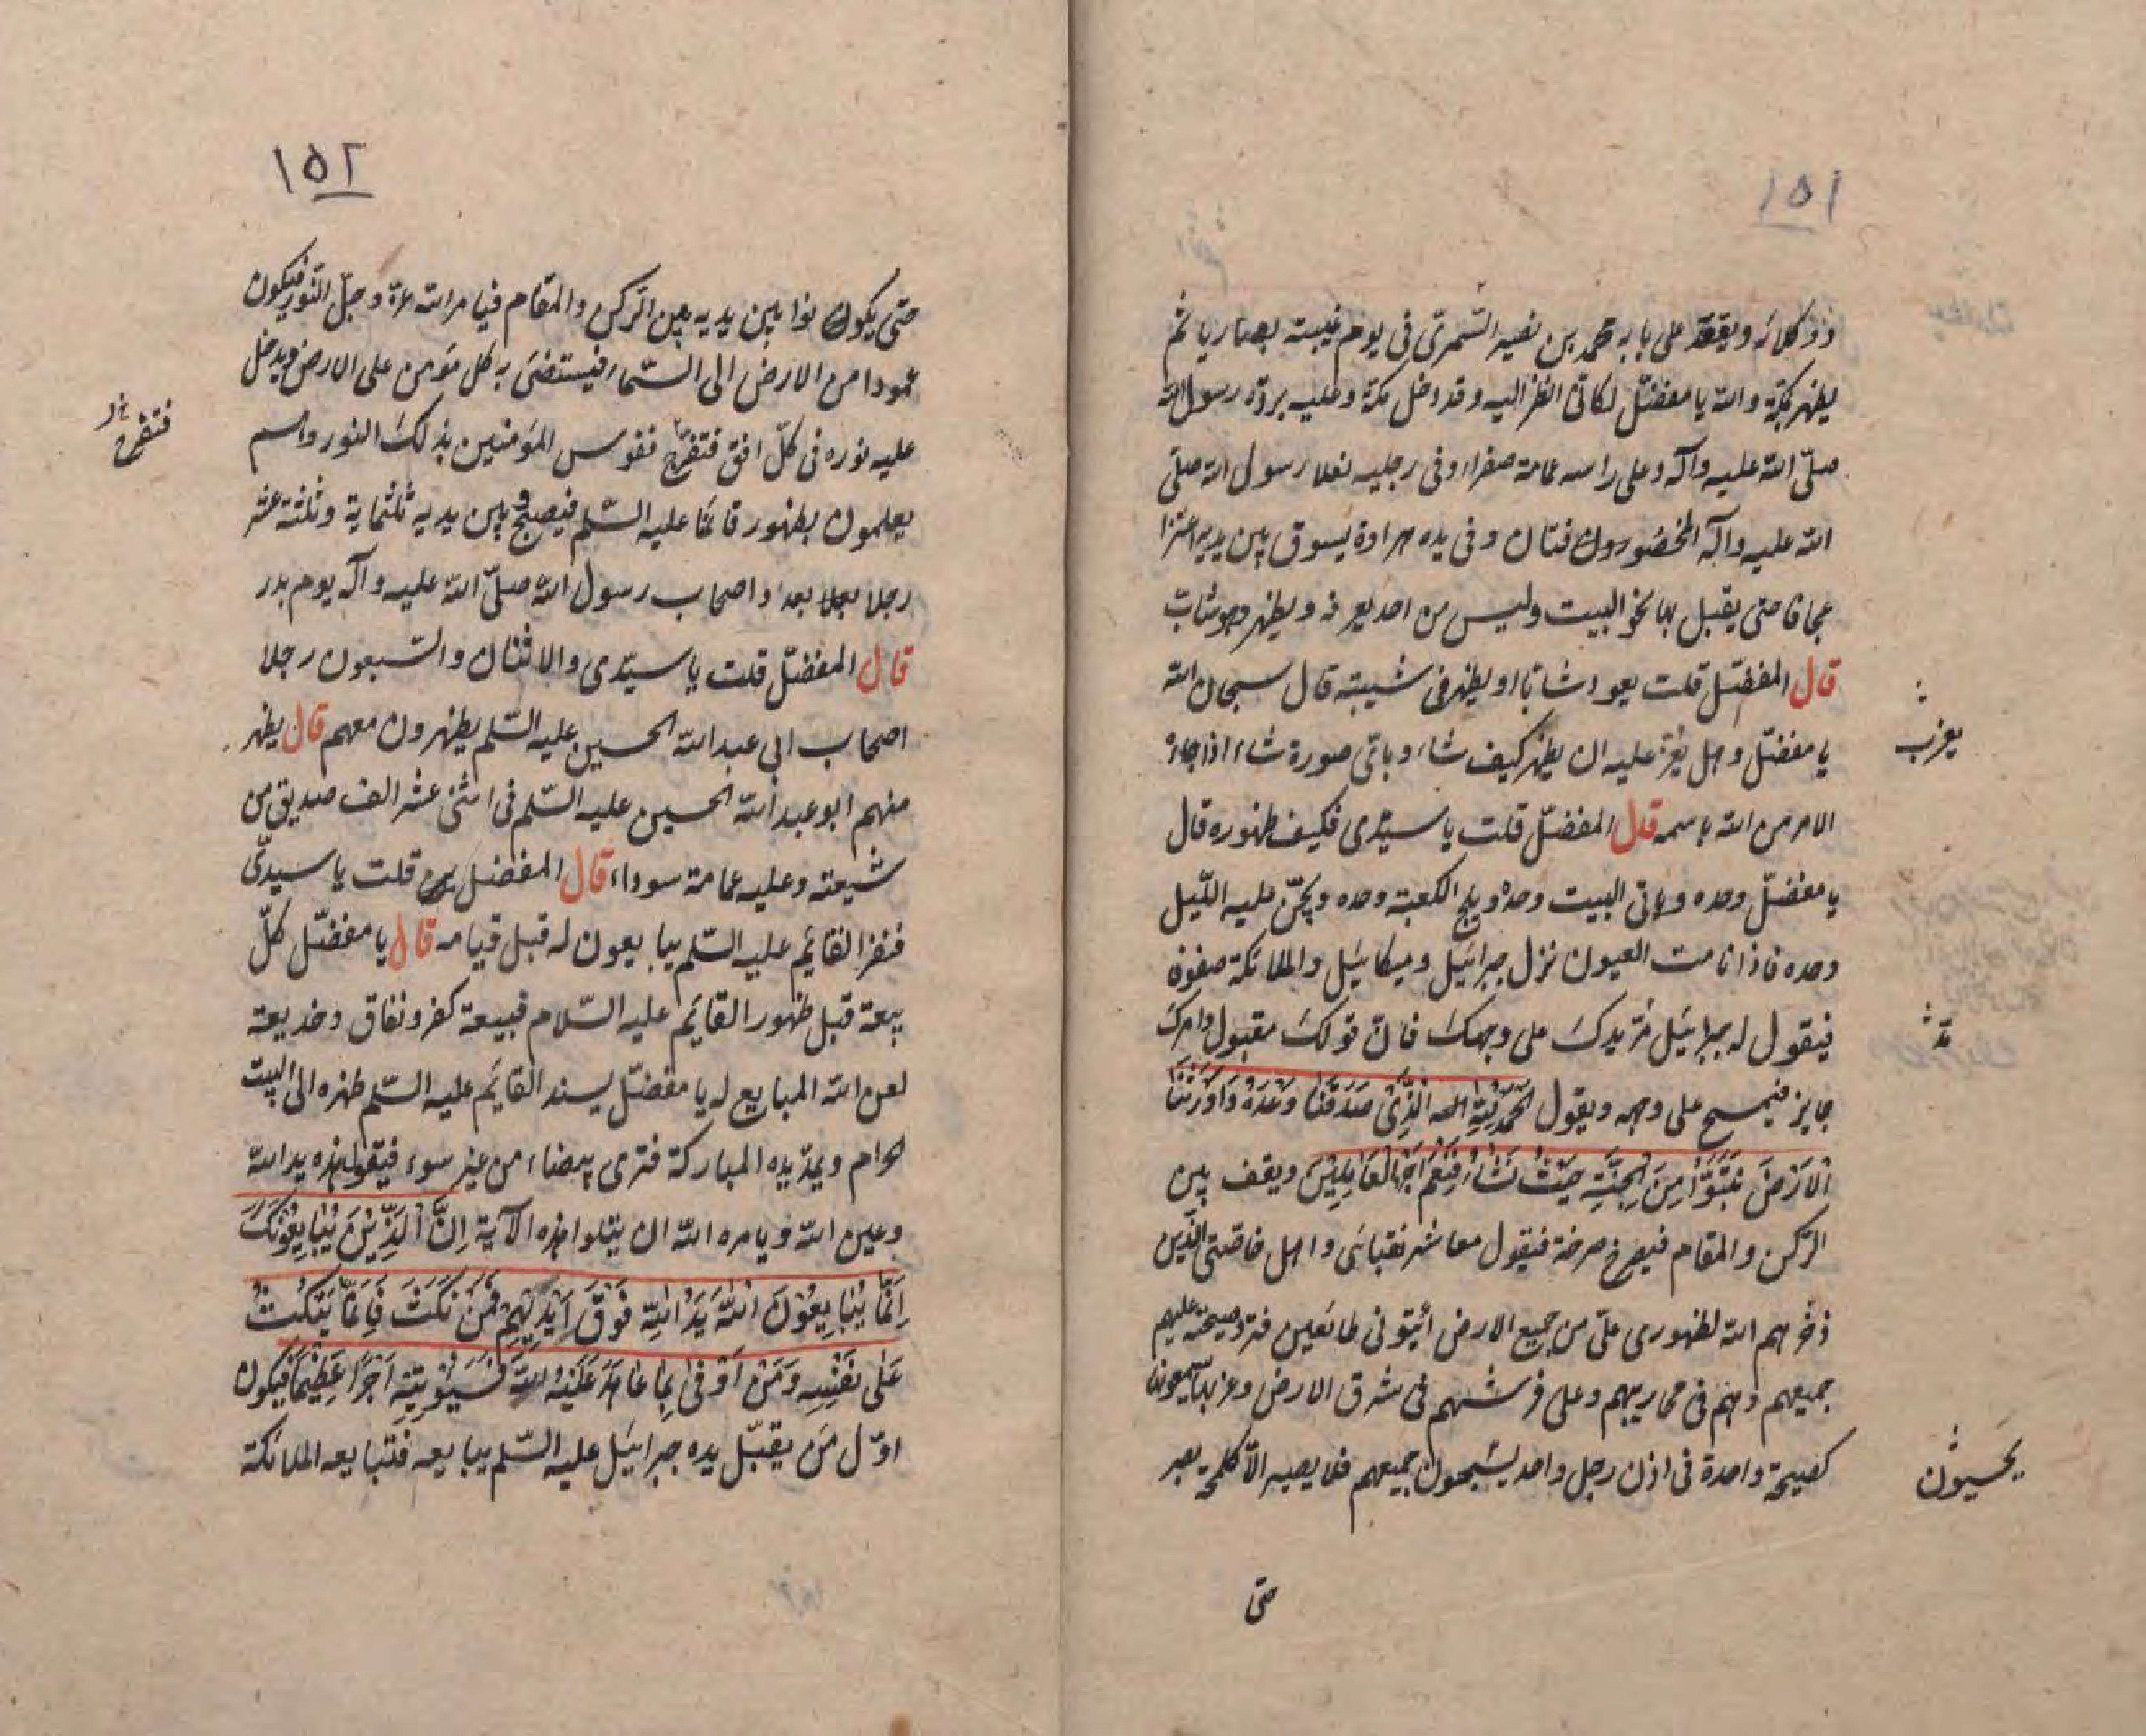 ١٥١
ووكلائه ويقعد على بابه محمد بن نصير النميري في يوم غيبته بصاريا ثم
يظهر بمكة والله يا مفضّل لكانّي انظر اليه وقد دخل مكة وعليه بردة رسول الله
صلّى الله عليه وآله وعلى راسه عمامة صفراء وفي رجليه نعلا رسول الله صلّى
الله عليه وآله المخضورتان وفي يده هراوة يسوق بين يديه اعنزا
عجافا حتى يقبل بها نحو البيت وليس من احد يعرفه ويظهر وهو شابّ
قال المفضّل قلت يعود شابّا او يظهر في شيبته قال سبحان الله
يا مفضّل وهل يعزّ عليه ان يظهر كيف شاء وبايّ صورة شاء اذا جاءه
يعزب
الامر من الله باسمه قال المفضّل قلت يا سيّدي فكيف ظهوره قال
يا مفضّل وحده وياتي البيت وحده ويلج الكعبة وحده ويجنّ عليه اللّيل
وحده فاذا نامت العيون نزل جبرائيل وميكائيل والملائكة صفوفا
فيقول له جبرائيل مرّ يدك على وجهك فانّ قولك مقبول وامرك
جايز فيمسح على وجهه ويقول الحمد لله الّذي صدقنا وعده واورثنا
الارض نتبوّأ من الجنّة حيث نشاء فنعم اجر العاملين ويقف بين
الركن والمقام فيصرخ صرخة فيقول معاشر نقبائي واهل خاصّتي الّذين
ذخرهم الله لظهوري علىّ من جميع الارض ائيتوني طائعين فترد صيحته عليهم
جميعهم وهم في محاريبهم وعلى فرشهم في شرق الارض وغربها يسمعونها
كصيحة واحدة في اذن رجل واحد جميعهم فلا يصيبه الّا كلمحة بصر
يحسبون
حتى
١٥٢
حتى يكون نوا بين يديه بين الركن والمقام فيامر الله عزّ وجلّ النّور فيكون
عمودا من الارض الى السّماء فيستضئ به كل مؤمن على الارض ويدخل
عليه نوره في كلّ افق فتفرح نفوس المؤمنين بذلك النور وهم
فتفرح
يعلمون بظهور قائمنا عليه السّلم فيصبح بين يديه ثلثماية وثلثة عشر
رجلا بعدد اصحاب رسول الله صلّى الله عليه وآله يوم بدر
قال المفضّل قلت يا سيّدي والاثنان والسبعون رجلا
اصحاب ابي عبد الله الحسين عليه السّلم يظهرون معهم قال يظهر
منهم ابو عبد الله الحسين عليه السّلم في اثنى عشر الف صديق من
شيعته وعليه عمامة سوداء قال المفضل قلت يا سيدي
فنفر القايم عليه السّلم يبايعون له قبل قيامه قال يا مفضّل كلّ
بيعة قبل ظهور القايم عليه السّلام فبيعة كفر ونفاق وخديعة
لعن الله المبايع له يا مفضّل يسند القايم عليه السّلم ظهره الى البيت
الحرام ويمدّ يده المباركة فترى بيضاء من غير سوء فيقول هذه يد الله
وعين الله ويامره الله ان يتلوا هذه الآية انّ الّذين يبايعونك
انّما يبايعون الله يد الله فوق ايديهم فمن نكث فانّما ينكث
على نفسه ومن اوفى بما عاهد عليه الله فسيؤتيه اجرا عظيما فيكون
اوّل من يقبّل يده جبرائيل عليه السّلم يبايعه فتبايعه الملائكة